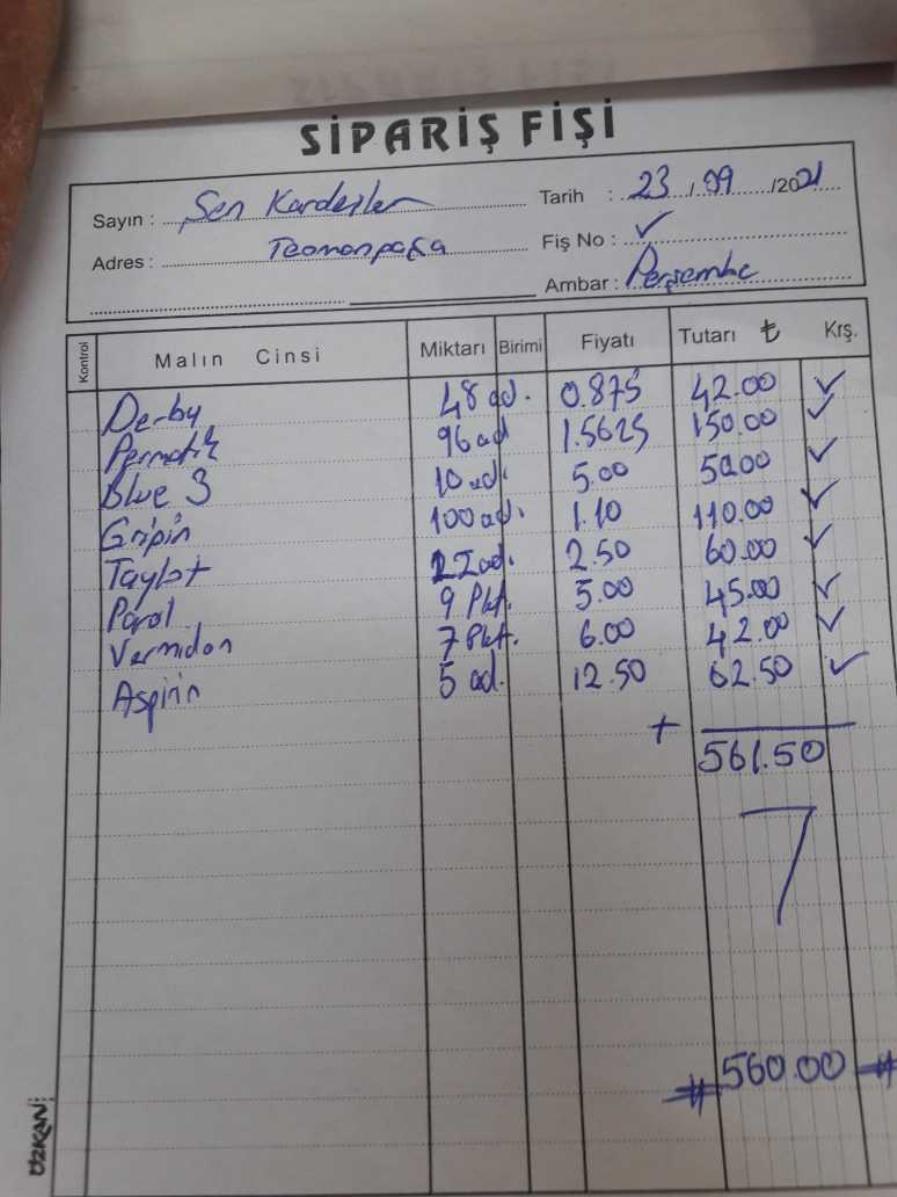 SİPARİŞ FİŞİ
Sayın : Şen Kardeşler
Tarih : 23 / 09 /2021
Adres : Teomanpaşa
Fiş No : ✓
Ambar : Perşembe
Kontrol Malın Cinsi Miktarı Birimi Fiyatı Tutarı ₺ Krş.
Derby 48 ad. 0.875 42.00 ✓
Permatik 96 ad 1.5625 150.00 ✓
Blue 3 10 ad. 5.00 50.00 ✓
Gripin 100 ad. 1.10 110.00 ✓
Taylot ad. 2.50 60.00 ✓
Parol 9 Pkt. 5.00 45.00 ✓
Vermidon 7 Pkt. 6.00 42.00 ✓
Aspirin 5 ad. 12.50 62.50 ✓
+
561.50
7
# 560.00 #
ÜZKAN